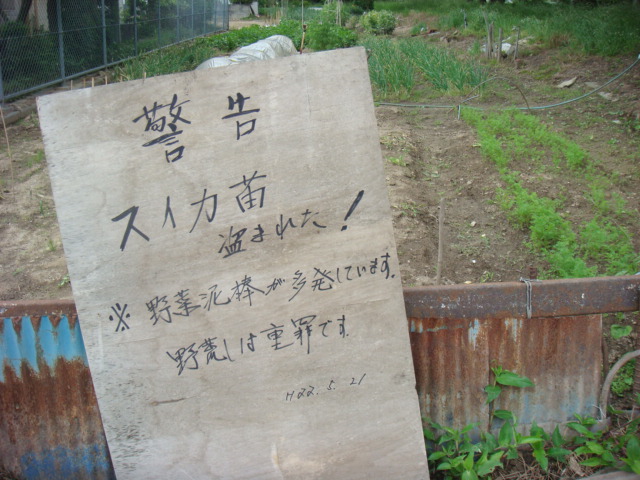 警告
スイカ苗
盗まれた!
※野菜泥棒が多発しています。
野荒しは重罪です。
H22.5.21